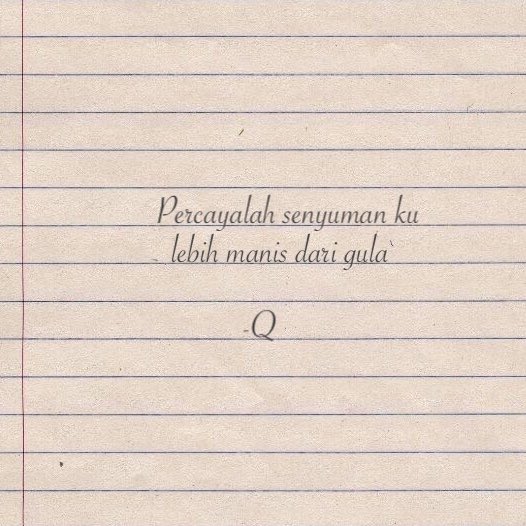 Percayalah senyuman ku
lebih manis dari gula
-Q